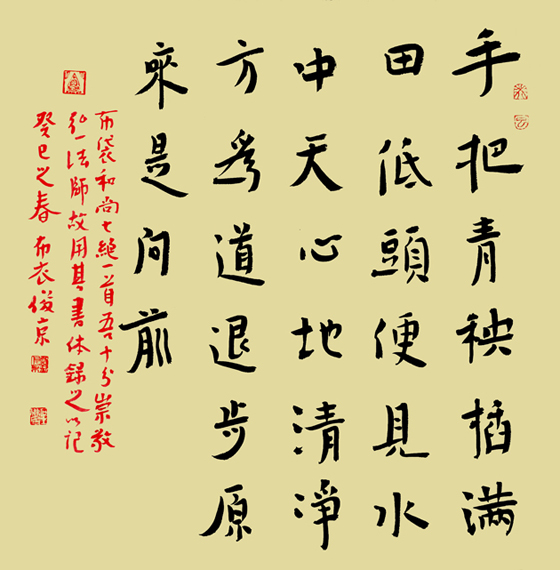 手把青秧插满
田低頭便見水
中天心地清淨
方為道退步原
來是向前
布袋和尚七絕一首吾十分崇敬
弘一法師故用其書体録之以記
癸巳之春 布衣俊京